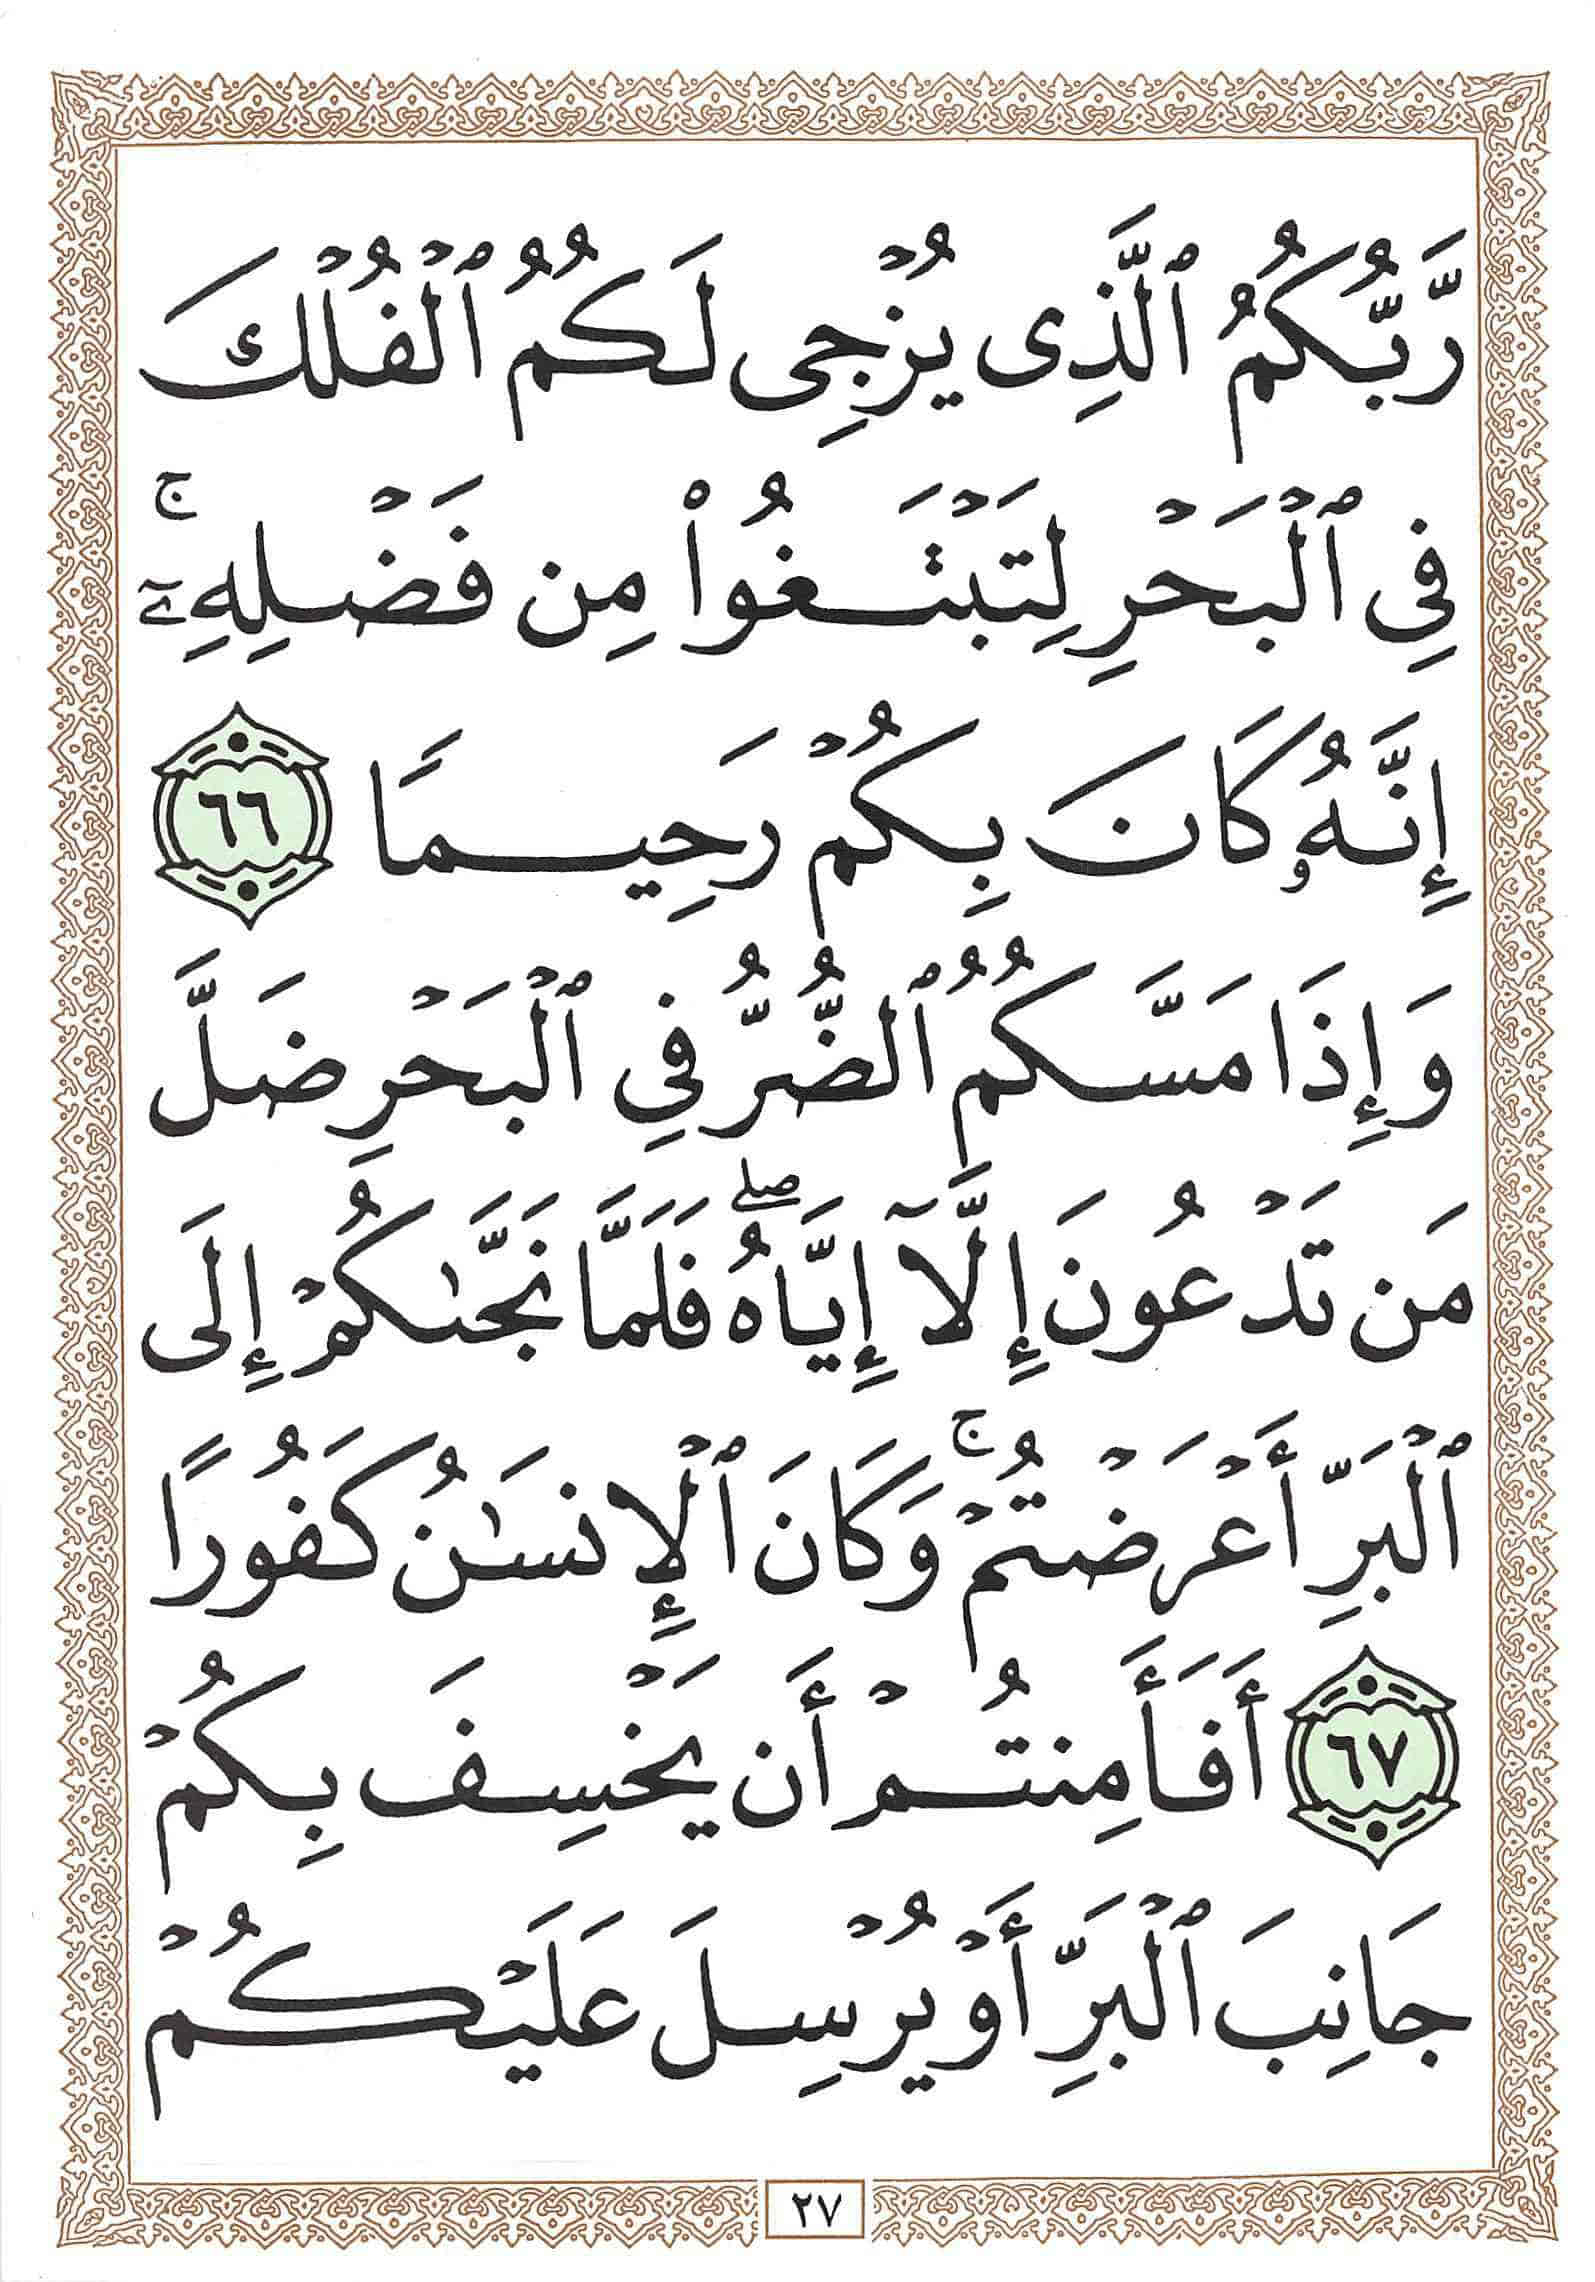 رَّبُّكُمُ ٱلَّذِى يُزْجِى لَكُمُ ٱلْفُلْكَ
فِى ٱلْبَحْرِ لِتَبْتَغُوا۟ مِن فَضْلِهِۦٓ ۚ
إِنَّهُۥ كَانَ بِكُمْ رَحِيمًا ٦٦
وَإِذَا مَسَّكُمُ ٱلضُّرُّ فِى ٱلْبَحْرِ ضَلَّ
مَن تَدْعُونَ إِلَّآ إِيَّاهُ ۖ فَلَمَّا نَجَّىٰكُمْ إِلَى
ٱلْبَرِّ أَعْرَضْتُمْ ۚ وَكَانَ ٱلْإِنسَٰنُ كَفُورًا
٦٧ أَفَأَمِنتُمْ أَن يَخْسِفَ بِكُمْ
جَانِبَ ٱلْبَرِّ أَوْ يُرْسِلَ عَلَيْكُمْ
٢٧